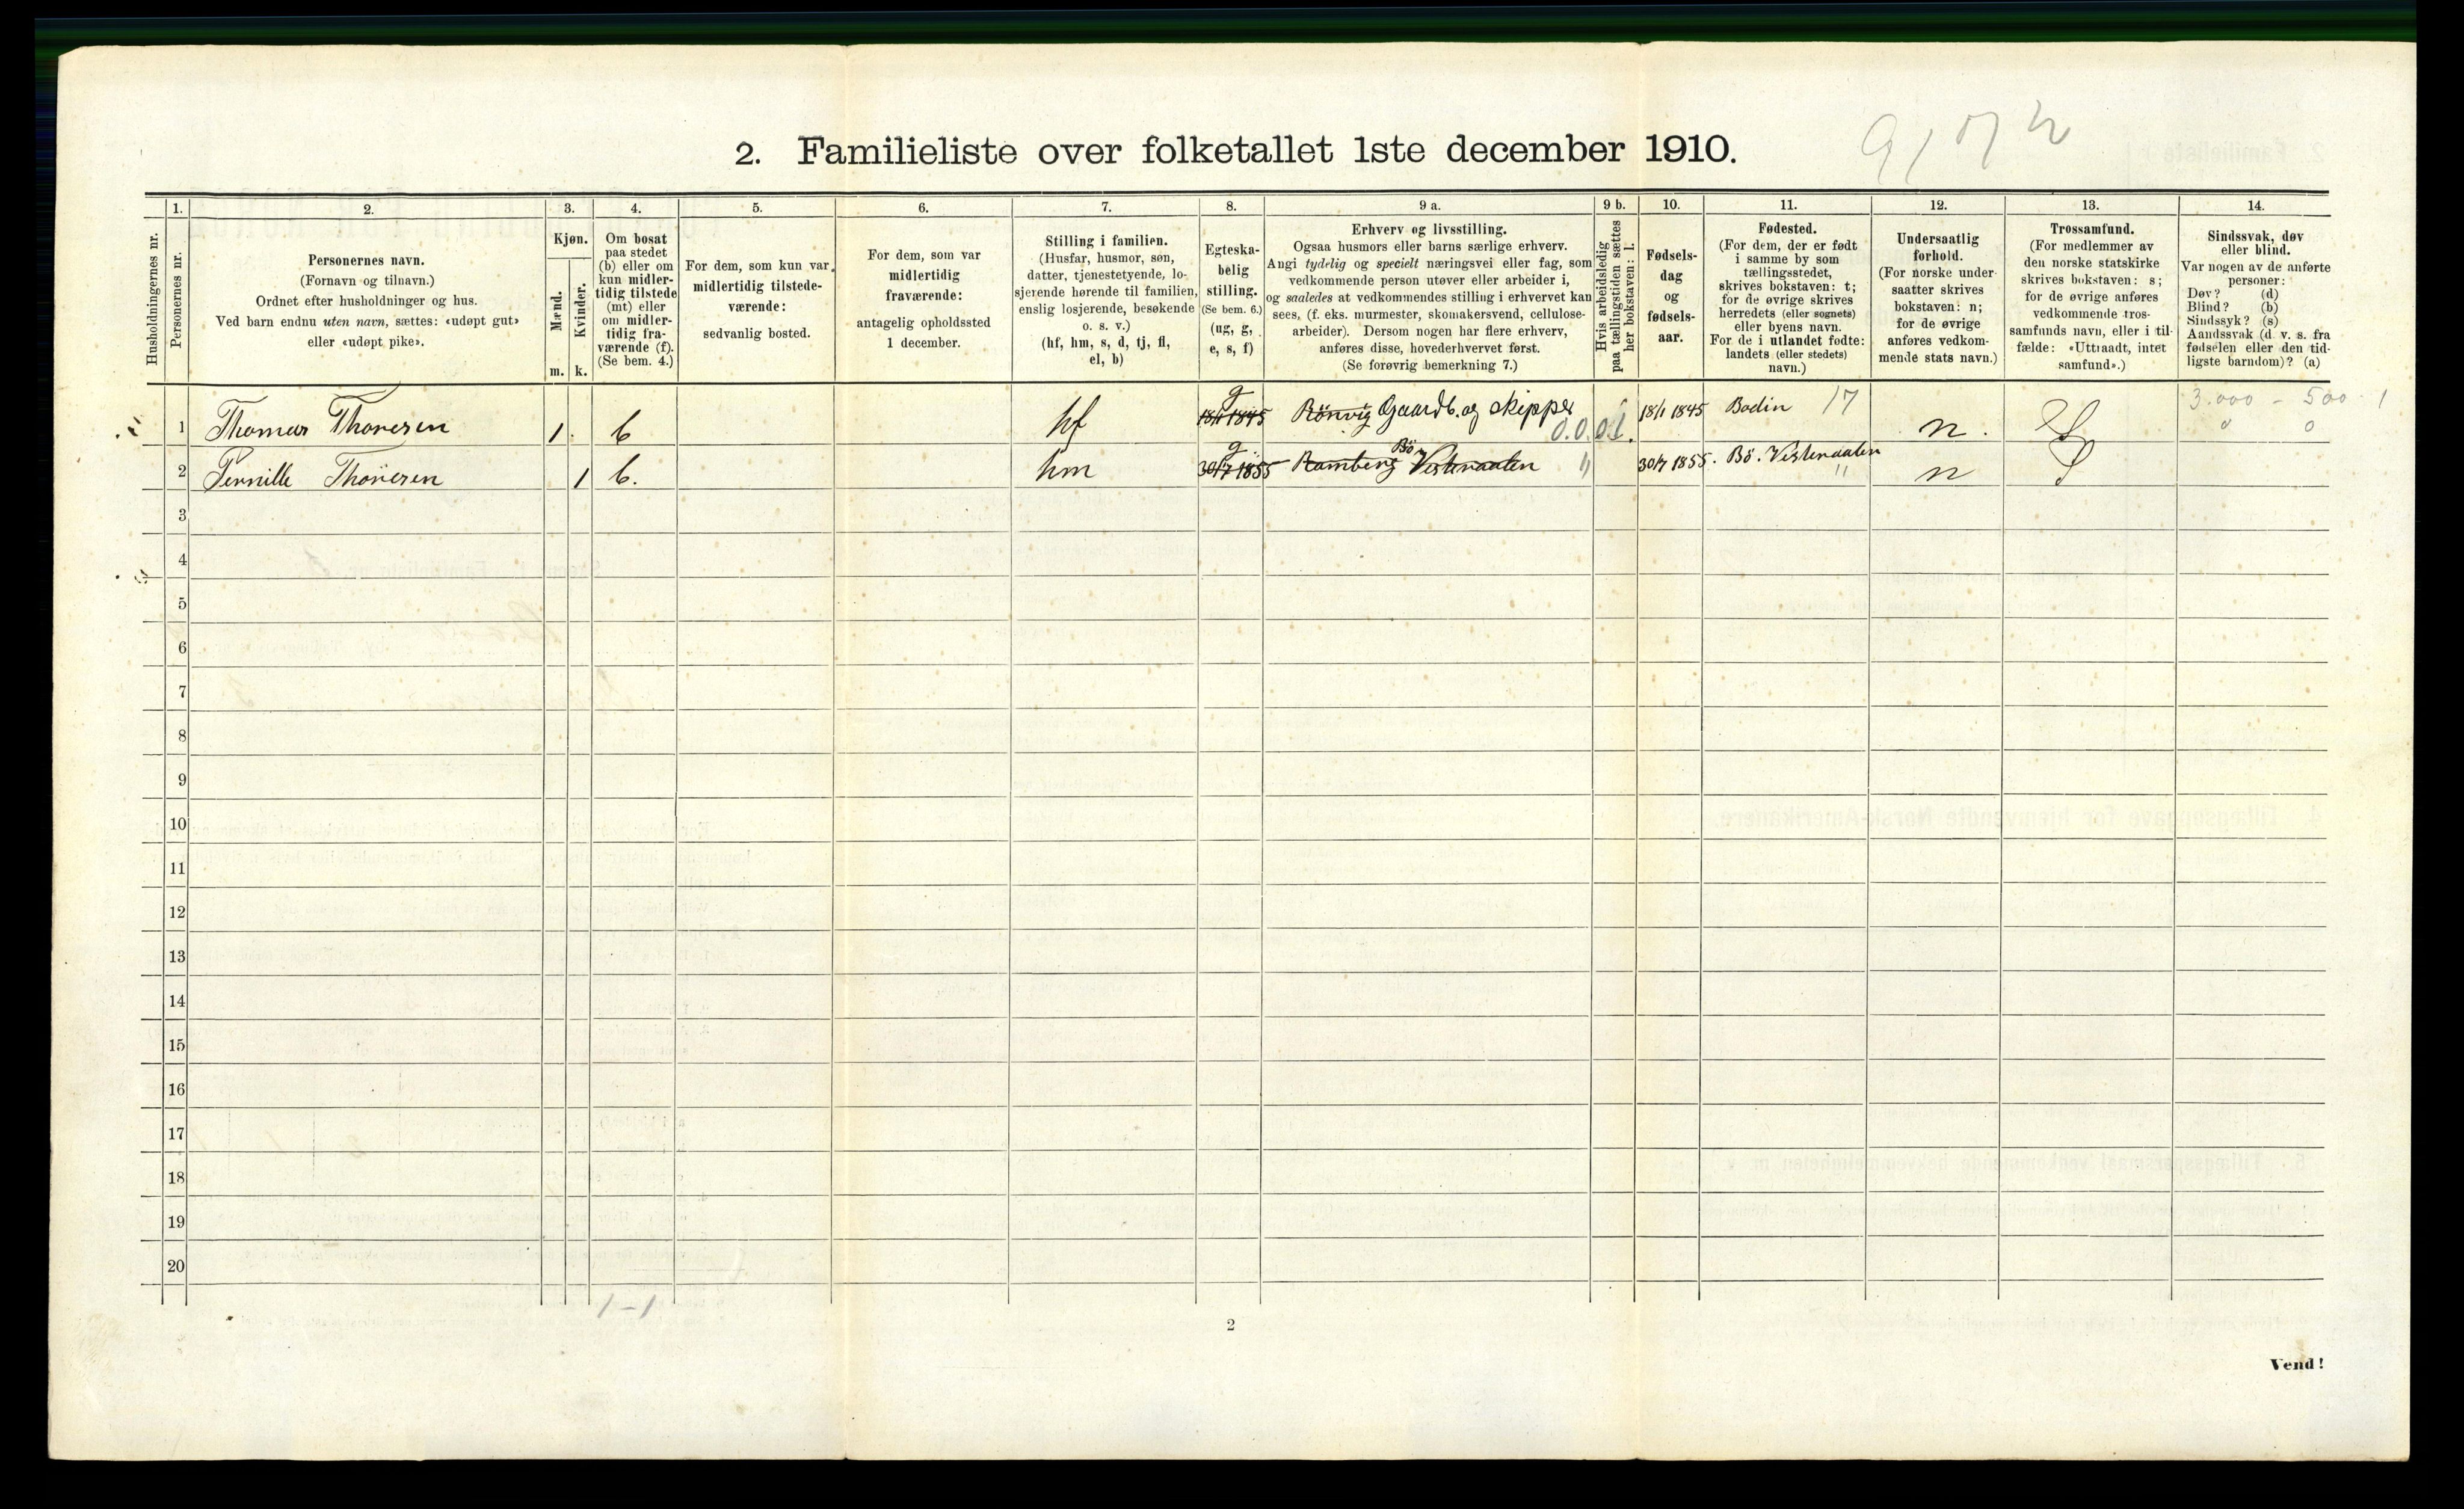 2. Familieliste over folketallet 1ste december 1910.
Husholdningernes nr.
1.
Personernes nr.
2.
Personernes navn.
(Fornavn og tilnavn.)
Ordnet efter husholdninger og hus.
Ved barn endnu uten navn, sættes: «udøpt gut»
eller «udøpt pike».
3.
Kjøn.
Mænd.
Kvinder.
m. k.
4.
Om bosat
paa stedet
(b) eller om
kun midler-
tidig tilstede
(mt) eller
om midler-
tidig fra-
værende (f).
(Se bem. 4.)
5.
For dem, som kun var
midlertidig tilstede-
værende:
sedvanlig bosted.
6.
For dem, som var
midlertidig
fraværende:
antagelig opholdssted
1 december.
7.
Stilling i familien.
(Husfar, husmor, søn,
datter, tjenestetyende, lo-
sjerende hørende til familien,
enslig losjerende, besøkende
o. s. v.)
(hf, hm, s, d, tj, fl,
el, b)
8.
Egteska-
belig
stilling.
(Se bem. 6.)
(ug, g,
e, s, f)
9 a.
Erhverv og livsstilling.
Ogsaa husmors eller barns særlige erhverv.
Angi tydelig og specielt næringsvei eller fag, som
vedkommende person utøver eller arbeider i,
og saaledes at vedkommendes stilling i erhvervet kan
sees, (f. eks. murmester, skomakersvend, cellulose-
arbeider). Dersom nogen har flere erhverv,
anføres disse, hovederhvervet først.
(Se forøvrig bemerkning 7.)
9 b.
Hvis arbeidsledig
paa tællingstiden sættes
her bokstaven: l.
10.
Fødsels-
dag
og
fødsels-
aar.
11.
Fødested.
(For dem, der er født
i samme by som
tællingsstedet,
skrives bokstaven: t;
for de øvrige skrives
herredets (eller sognets)
eller byens navn.
For de i utlandet fødte:
landets (eller stedets)
navn.)
12.
Undersaatlig
forhold.
(For norske under-
saatter skrives
bokstaven: n;
for de øvrige
anføres vedkom-
mende stats navn.)
13.
Trossamfund.
(For medlemmer av
den norske statskirke
skrives bokstaven: s;
for de øvrige anføres
vedkommende tros-
samfunds navn, eller i til-
fælde: «Uttraadt, intet
samfund».)
14.
Sindssvak, døv
eller blind.
Var nogen av de anførte
personer:
Døv? (d)
Blind? (b)
Sindssyk? (s)
Aandssvak (d. v. s. fra
fødselen eller den tid-
ligste barndom)? (a)
1 Thomas Thoresen 1. b hf g 18/1 1845 Rönvig Gaardb. og skipper 0.0.01. 18/1 1845 Bodin 17 n. S 3.000 - 500 1
2 Pernille Thoresen 1 b. hm g 30/7 1855 Ramberg Bö Vesteraalen " 30/7 1855. Bö. Vesteraalen " n S
3
4
5
6
7
8
9
10
11
12
13
14
15
16
17
18
19
20
1-1
2
Vend!